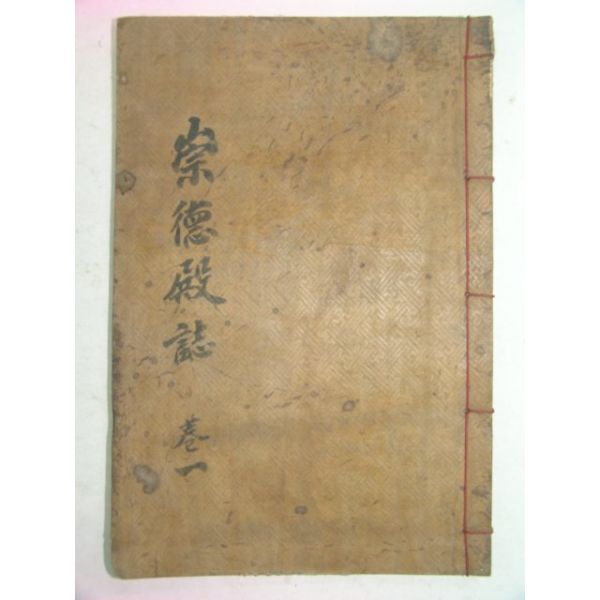 崇德殿誌 卷一